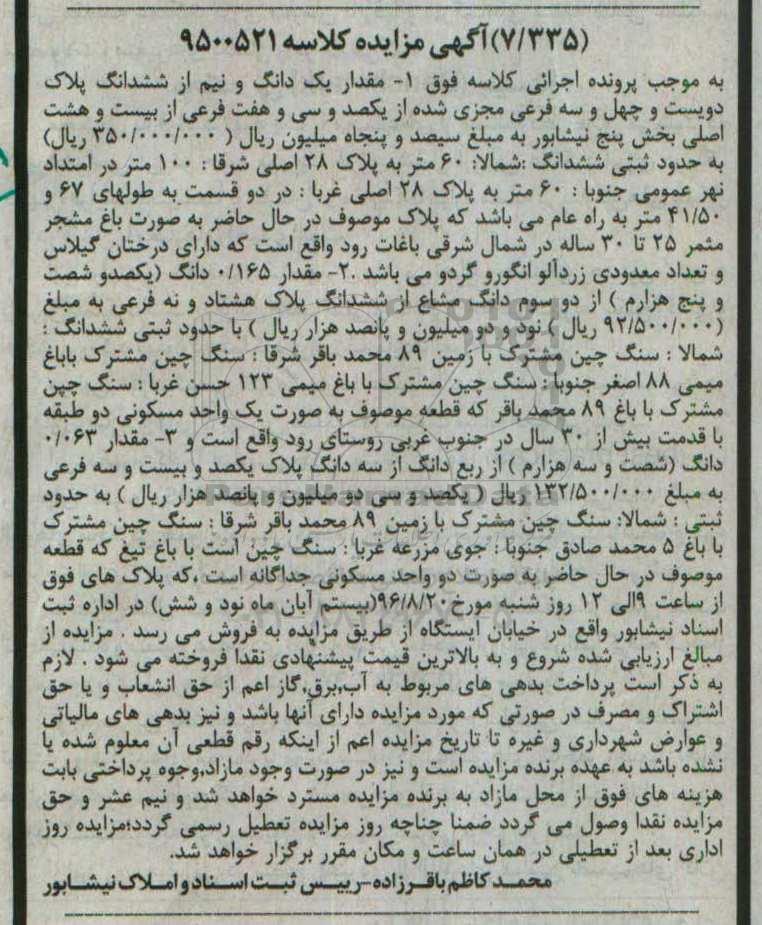 (۷/۳۳۵)آگهی مزایده کلاسه ۹۵۰۰۵۲۱
به موجب پرونده اجرائی کلاسه فوق ۱- مقدار یک دانگ و نیم از ششدانگ پلاک
دویست و چهل و سه فرعی مجزی شده از یکصد و سی و هفت فرعی از بیست و هشت
اصلی بخش پنج نیشابور به مبلغ سیصد و پنجاه میلیون ریال ( ۳۵۰/۰۰۰/۰۰۰ ریال)
به حدود ثبتی ششدانگ :شمالا: ۶۰ متر به پلاک ۲۸ اصلی شرقا : ۱۰۰ متر در امتداد
نهر عمومی جنوبا : ۶۰ متر به پلاک ۲۸ اصلی غربا : در دو قسمت به طولهای ۶۷ و
۴۱/۵۰ متر به راه عام می باشد که پلاک موصوف در حال حاضر به صورت باغ مشجر
مثمر ۲۵ تا ۳۰ ساله در شمال شرقی باغات رود واقع است که دارای درختان گیلاس
و تعداد معدودی زردآلو انگورو گردو می باشد .۲- مقدار ۰/۱۶۵ دانگ (یکصدو شصت
و پنج هزارم ) از دو سوم دانگ مشاع از ششدانگ پلاک هشتاد و نه فرعی به مبلغ
(۹۲/۵۰۰/۰۰۰ ریال ) نود و دو میلیون و پانصد هزار ریال ) با حدود ثبتی ششدانگ :
شمالا : سنگ چین مشترک با زمین ۸۹ محمد باقر شرقا : سنگ چین مشترک باباغ
میمی ۸۸ اصغر جنوبا : سنگ چین مشترک با باغ میمی ۱۲۳ حسن غربا : سنگ چین
مشترک با باغ ۸۹ محمد باقر که قطعه موصوف به صورت یک واحد مسکونی دو طبقه
با قدمت بیش از ۳۰ سال در جنوب غربی روستای رود واقع است و ۳- مقدار ۰/۰۶۳
دانگ (شصت و سه هزارم ) از ربع دانگ از سه دانگ پلاک یکصد و بیست و سه فرعی
به مبلغ ۱۳۲/۵۰۰/۰۰۰ ریال ( یکصد و سی دو میلیون و پانصد هزار ریال ) به حدود
ثبتی : شمالا: سنگ چین مشترک با زمین ۸۹ محمد باقر شرقا : سنگ چین مشترک
با باغ ۵ محمد صادق جنوبا : جوی مزرعه غربا : سنگ چین است با باغ تیغ که قطعه
موصوف در حال حاضر به صورت دو واحد مسکونی جداگانه است ،که پلاک های فوق
از ساعت ۹الی ۱۲ روز شنبه مورخ۹۶/۸/۲۰(بیستم آبان ماه نود و شش) در اداره ثبت
اسناد نیشابور واقع در خیابان ایستگاه از طریق مزایده به فروش می رسد . مزایده از
مبالغ ارزیابی شده شروع و به بالاترین قیمت پیشنهادی نقدا فروخته می شود . لازم
به ذکر است پرداخت بدهی های مربوط به آب,برق,گاز اعم از حق انشعاب و یا حق
اشتراک و مصرف در صورتی که مورد مزایده دارای آنها باشد و نیز بدهی های مالیاتی
و عوارض شهرداری و غیره تا تاریخ مزایده اعم از اینکه رقم قطعی آن معلوم شده یا
نشده باشد به عهده برنده مزایده است و نیز در صورت وجود مازاد,وجوه پرداختی بابت
هزینه های فوق از محل مازاد به برنده مزایده مسترد خواهد شد و نیم عشر و حق
مزایده نقدا وصول می گردد ضمنا چناچه روز مزایده تعطیل رسمی گردد؛مزایده روز
اداری بعد از تعطیلی در همان ساعت و مکان مقرر برگزار خواهد شد.
محمد کاظم باقرزاده-رییس ثبت اسناد و املاک نیشابور